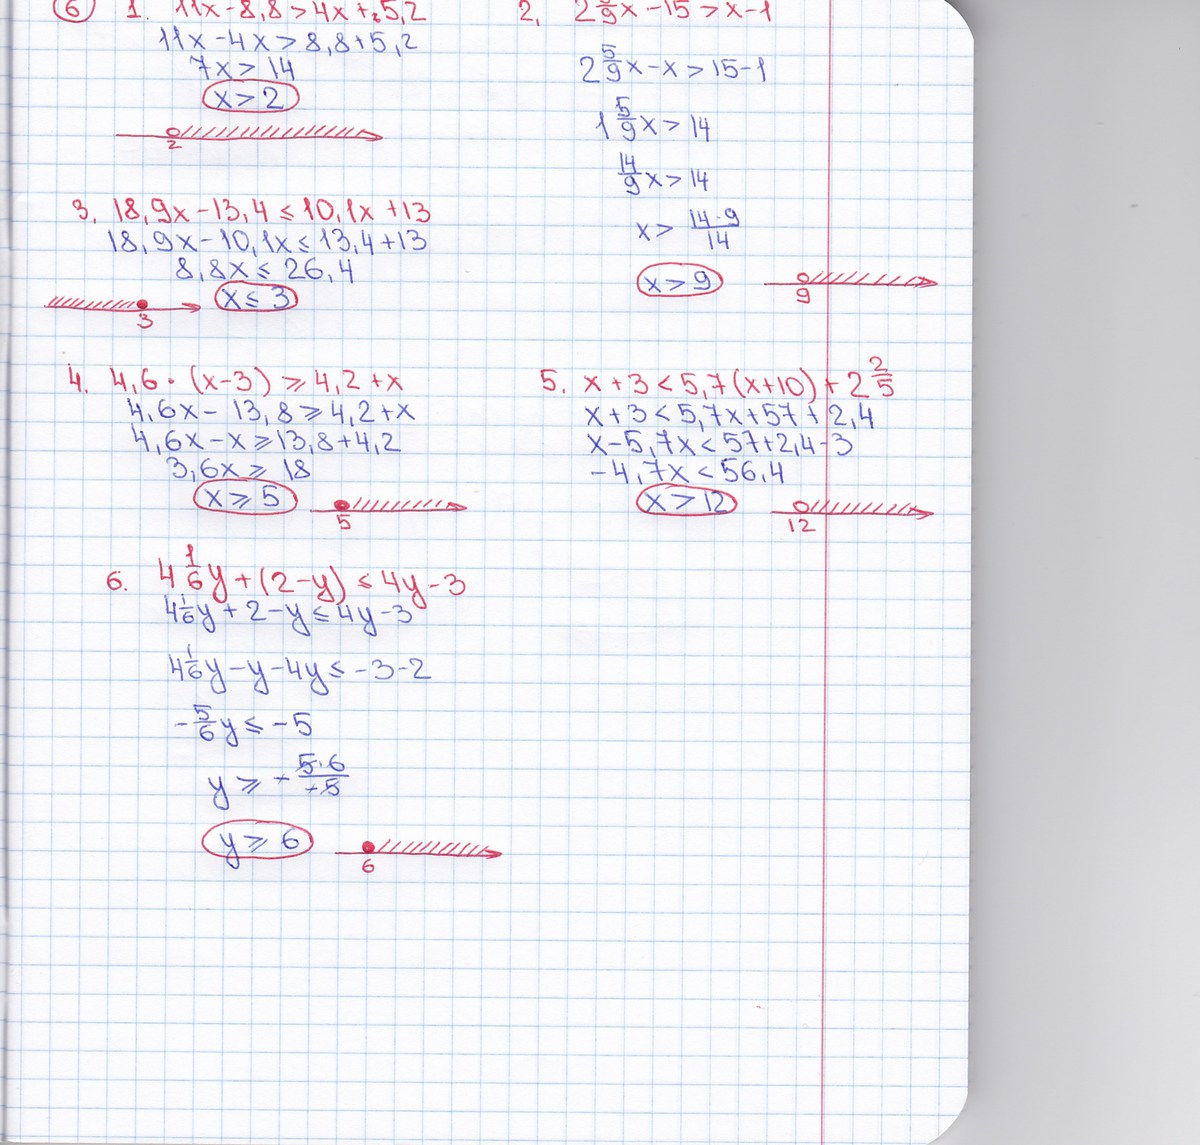 6 1. 11x-8,8>4x+5,2
11x-4x>8,8+5,2
7x>14
x>2
2
2. 2 5/9x-15>x-1
2 5/9x-x>15-1
1 5/9x>14
14/9x>14
x> 14·9/14
x>9
9
3. 18,9x-13,4≤10,1x+13
18,9x-10,1x≤13,4+13
8,8x≤26,4
x≤3
3
4. 4,6·(x-3)≥4,2+x
4,6x-13,8≥4,2+x
4,6x-x≥13,8+4,2
3,6x≥18
x≥5
5
5. x+3<5,7(x+10)+2 2/5
x+3<5,7x+57+2,4
x-5,7x<57+2,4-3
-4,7x<56,4
x>12
12
6. 4 1/6y+(2-y)≤4y-3
4 1/6y+2-y≤4y-3
4 1/6y-y-4y≤-3-2
-5/6y≤-5
y≥ -5·6/-5
y≥6
6